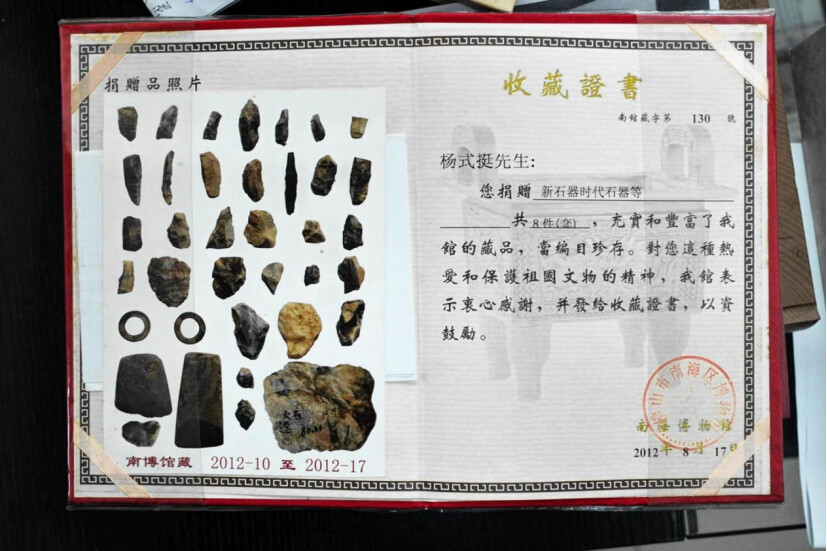 捐贈品照片
南博馆藏 2012-10 至 2012-17
收藏證書
南館藏字第 130 號
杨式挺先生:
您捐贈 新石器时代石器等
共 8件(套) ，充實和豐富了我
館的藏品，當編目珍存。對您這種熱
愛和保護祖國文物的精神，我館表
示衷心感謝，并發給收藏證書，以資
鼓勵。
佛山市南海区博物馆
南海博物館
2012年 8月 17日